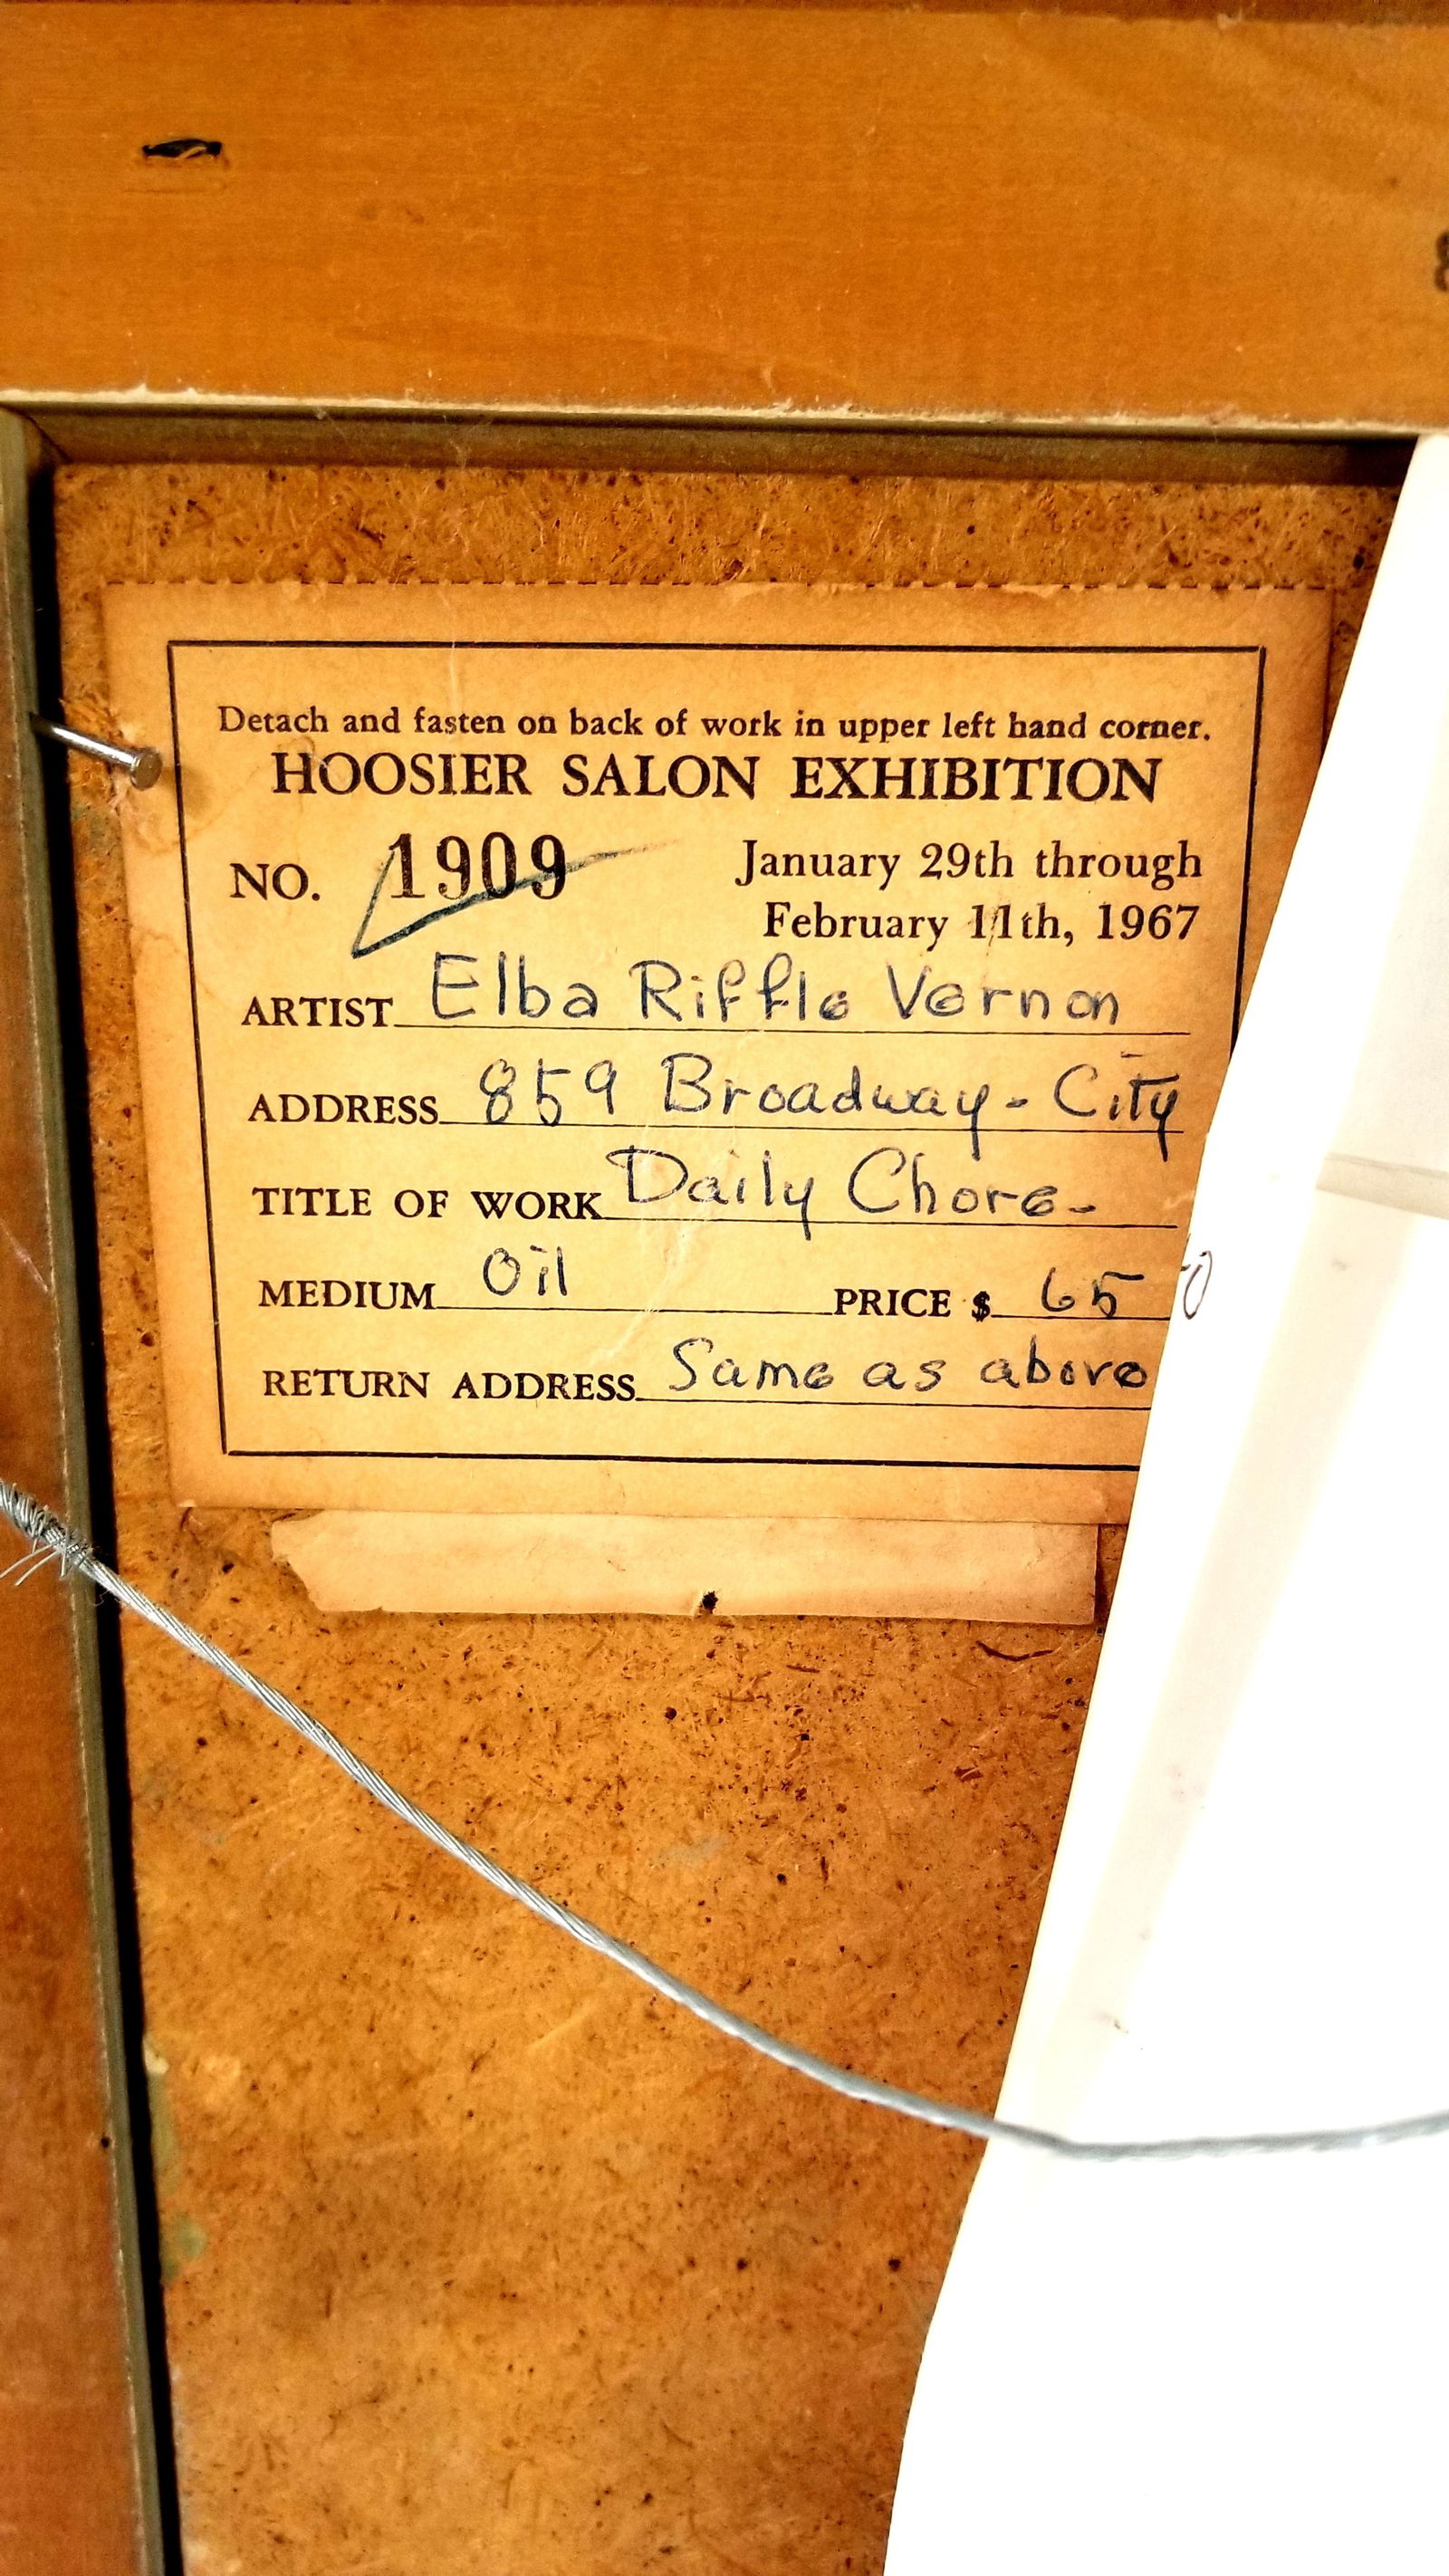 Detach and fasten on back of work in upper left hand corner.
HOOSIER SALON EXHIBITION
NO. 1909
January 29th through
February 11th, 1967
ARTIST Elba Riffle Vernon
ADDRESS 859 Broadway - City
TITLE OF WORK Daily Chore -
MEDIUM Oil PRICE $ 65
RETURN ADDRESS Same as above